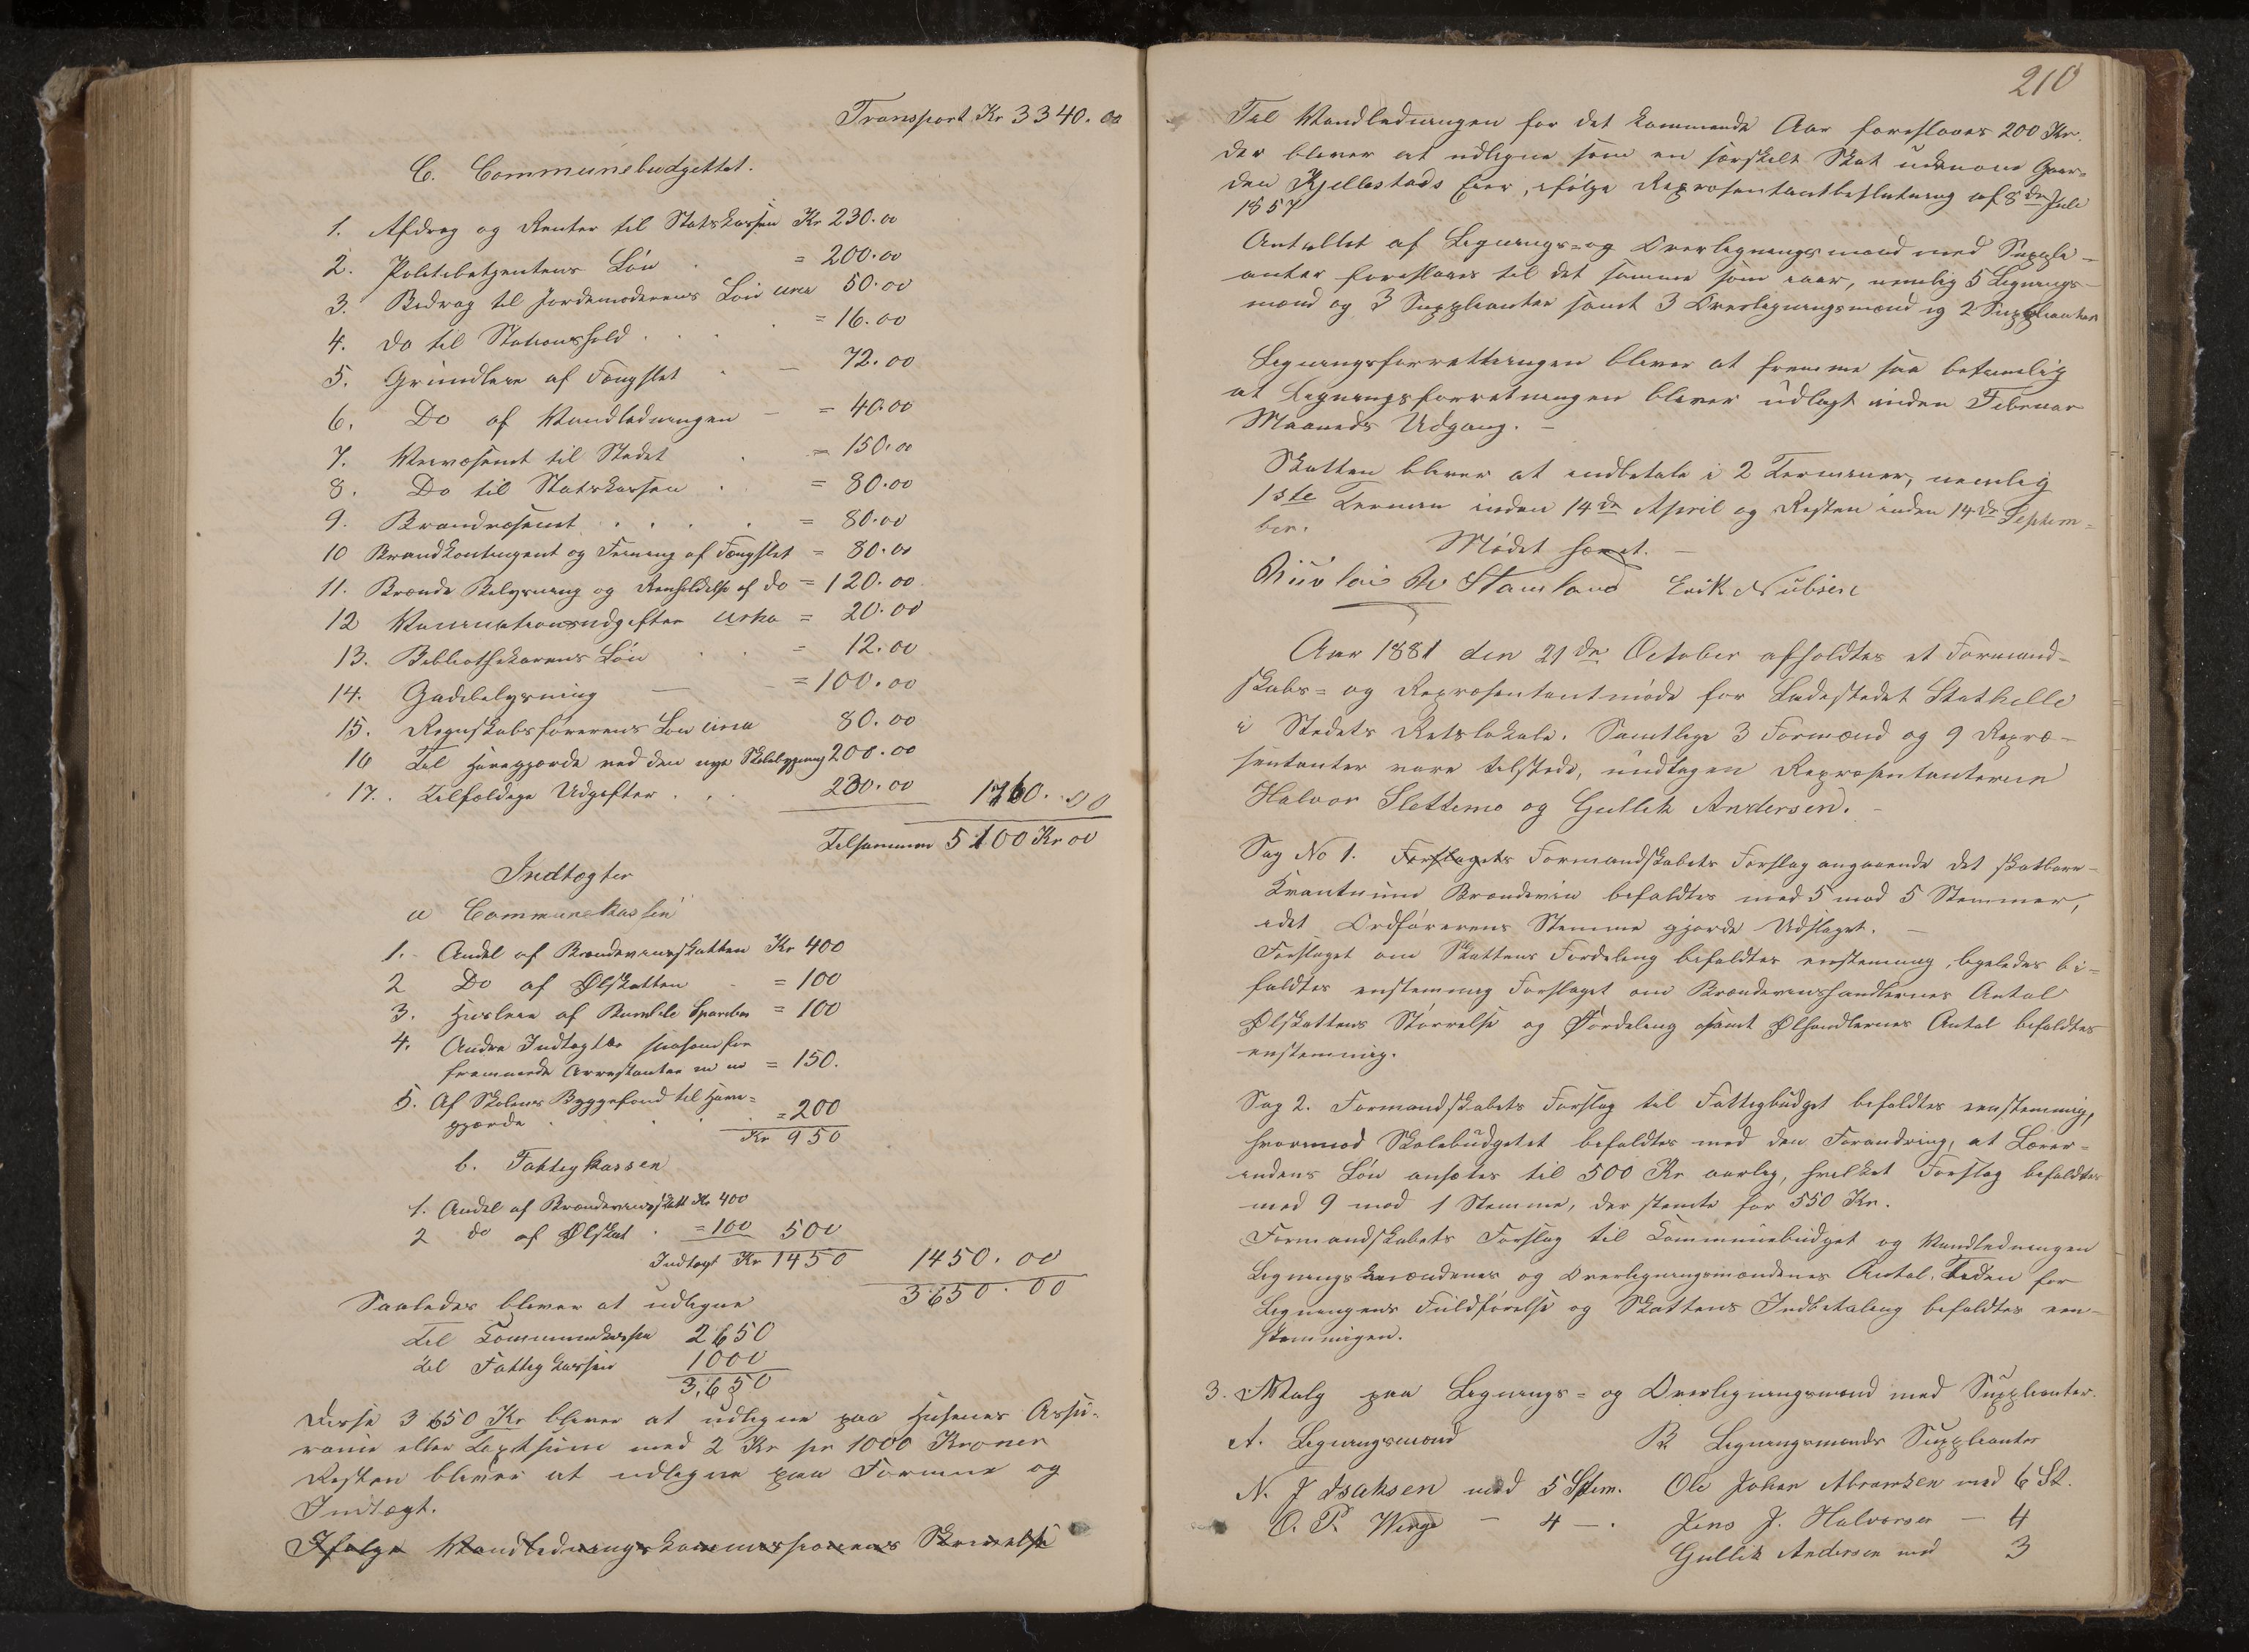 Transport Kr 3340.00
C. Communebudgettet.
1. Afdrag og Renter til Statskassen Kr 230.00
2. Politibetjentens Løn = 200.00
3. Bidrag til Jordemoderens Løn circa 50.00
4. do til Stationshold = 16.00
5. Grundleie af Fængslet — 72.00
6. Do af Vandledningen — = 40.00
7. Veivæsenet til Stedet = 150.00
8. Do til Statskassen = 80.00
9. Brandvæsenet = 80.00
10 Brandkontingent og Feining af Fængslet = 80.00
11. Brænde Belysning og Renholdelse af do = 120.00
12 Vaccinationsudgifter cirka = 20.00
13. Bibliothekarens Løn = 12.00
14. Gadebelysning — = 100.00
15. Regnskabsførerens Løn circa 80.00
16 Til Havegjærde ved den nye Skolebygning 200.00
17. Tilfældige Udgifter 230.00 1760.00
Tilsammen 5100 Kr 00
Indtægter
a Communekassen
1. Andel af Brændevinsskatten Kr 400
2 Do af Ølskatten = 100
3. Husleie af Bamble Sparebk = 100
4. Andre Indtægter saasom for
fremmede Arrestanter m m = 150.
5. Af Skolens Byggefond til Have-
gjærde = 200
Kr 950
b. Fattigkassen
1. Andel af Brændevinsskatt Kr 400
2 do af Ølskat = 100 500
Indtægt Kr 1450 1450.00
3650.00
Saaledes bliver at udligne
til Communekassen 2650
til Fattigkassen 1000
3,650
Disse 3650 Kr bliver at udligne paa Husenes Assu-
rance eller Taxtsum med 2 Kr pr 1000 Kroner
Resten bliver at udligne paa Formue og
Indtægt.
Ifølge Vandledningskommissionens Skrivelse
210
Til Vandledningen for det kommende Aar foreslaaes 200 Kr.
der bliver at udligne som en særskilt Skat udenom Gaar-
den Kjellestads Eier, ifølge Repræsentantbeslutning af 8de Juli
1857
Antallet af Lignings- og Overligningsmænd med Supple-
anter foreslaaes til det samme som iaar, nemlig 5 Lignings-
mænd og 3 Suppleanter samt 3 Overligningsmænd og 2 Suppleanter
Ligningsforretningen bliver at fremme saa betimelig
at Ligningsforretningen bliver udlagt inden Februar
Maaneds Udgang. —
Skatten bliver at indbetale i 2 Terminer, nemlig
1ste Termin inden 14de April og Resten inden 14de Septem-
ber.
Mødet hævet. —
Stamland Erik Nubsen
Aar 1881 den 21de October afholdtes et Formand-
skabs- og Repræsentantmøde for Ladestedet Stathelle
i Stedets Retslokale. Samtlige 3 Formænd og 9 Repræ-
sentanter vare tilstede, undtagen Repræsentanterne
Halvor Slettemo og Gullik Andersen. —
Sag No 1. Forslagets Formandskabets Forslag angaaende det skatbare
Kvantum Brændevin bifaldtes med 5 mod 5 Stemmer,
idet Ordførerens Stemme gjorde Udslaget. —
Forslaget om Skattens Fordeling bifaldtes enstemmig, ligeledes bi-
faldtes enstemmig Forslaget om Brændevinshandlernes Antal
Ølskattens Størrelse og Fordeling samt Ølhandlernes Antal bifaldtes
enstemmig.
Sag 2. Formandskabets Forslag til Fattigbudget bifaldtes eenstemmig,
hvorimod Skolebudgetet bifaldtes med den Forandring, at Lærer-
indens Løn ansættes til 500 Kr aarlig, hvilket Forslag bifaldtes
med 9 mod 1 Stemme, der stemte for 550 Kr.
Formandskabets Forslag til Communebudget og Vandledningen
Ligningsmændenes og Overligningsmændenes Antal. Tiden for
Ligningens Fuldførelse og Skattens Indbetaling bifaldtes een-
stemmigen.
3. Valg paa Lignings- og Overligningsmænd med Suppleanter.
A. Ligningsmænd B Ligningsmænds Suppleanter
N. J Isaksen med 5 Stem. Ole Johan Abramsen med 6 St.
O. P. Winge — 4 —. Jens J. Halvorsen — 4
Gullik Andersen med 3